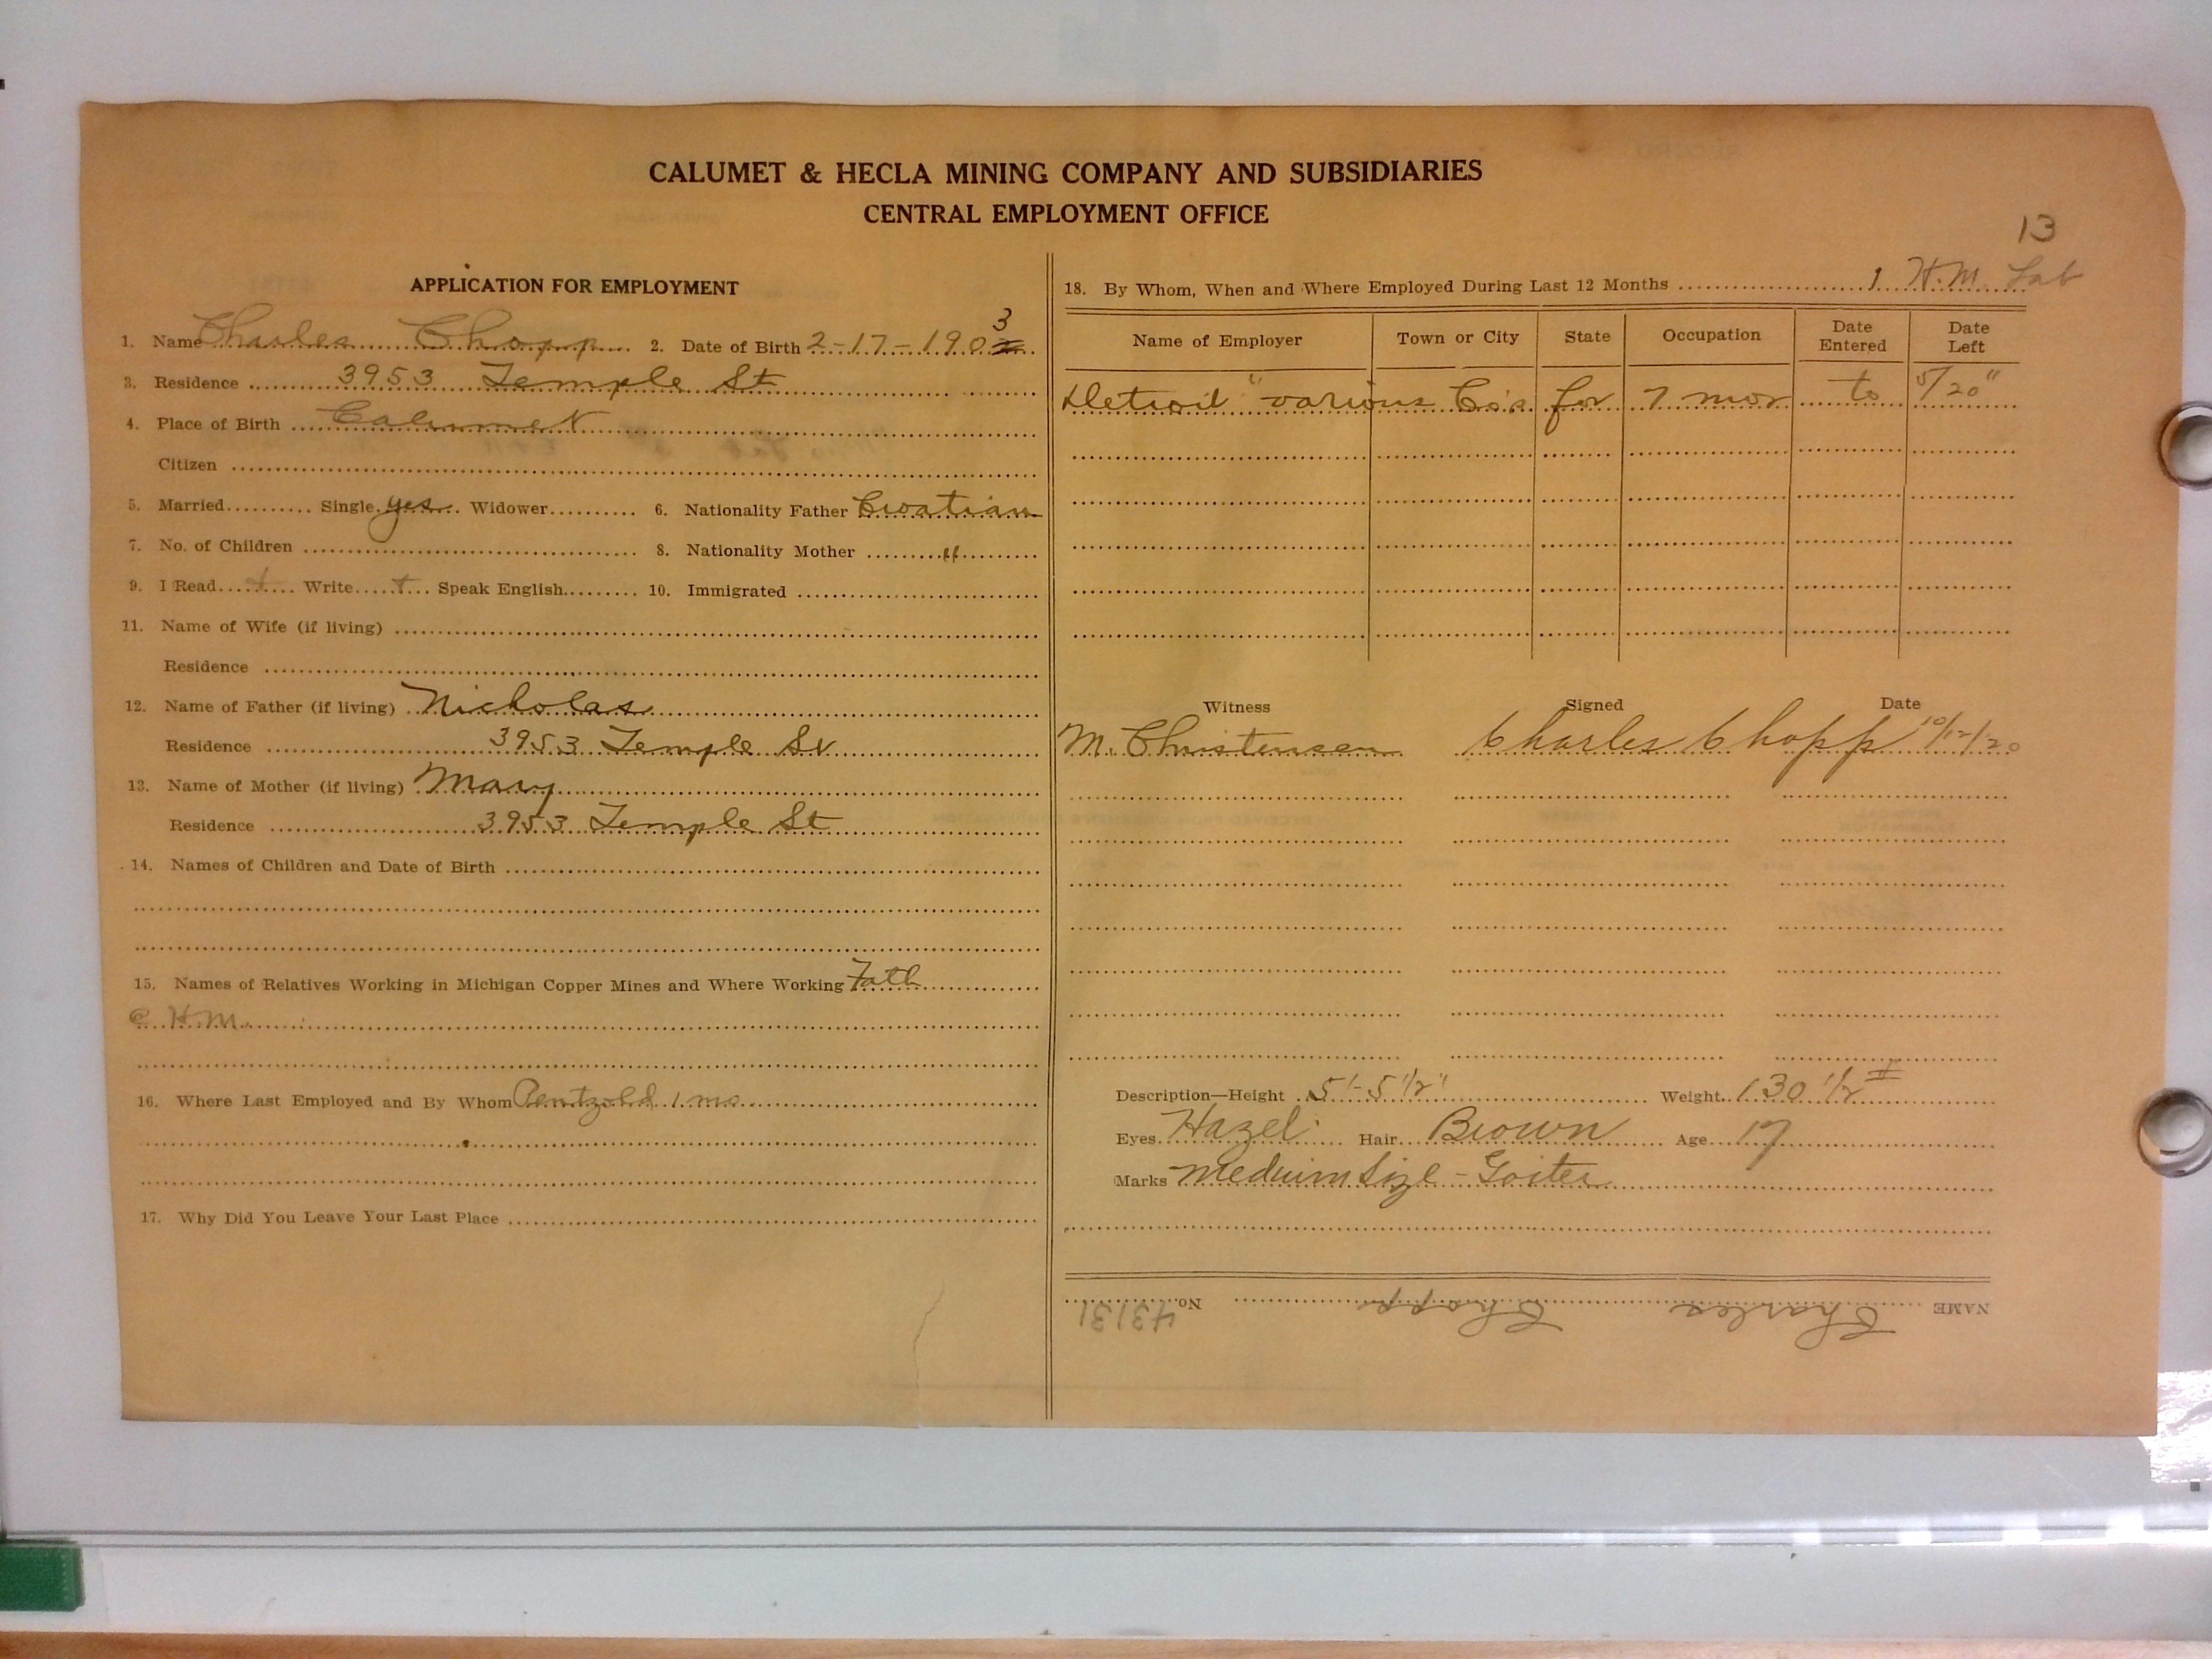 CALUMET & HECLA MINING COMPANY AND SUBSIDIARIES
CENTRAL EMPLOYMENT OFFICE
13
APPLICATION FOR EMPLOYMENT
1. Name Charles Chopp 2. Date of Birth 2-17-1903
3. Residence 3953 Temple St
4. Place of Birth Calumet
Citizen
5. Married Single yes Widower 6. Nationality Father Croatian
7. No. of Children 8. Nationality Mother "
9. I Read + Write + Speak English 10. Immigrated
11. Name of Wife (if living)
Residence
12. Name of Father (if living) Nicholas
Residence 3953 Temple St
13. Name of Mother (if living) Mary
Residence 3953 Temple St
14. Names of Children and Date of Birth
15. Names of Relatives Working in Michigan Copper Mines and Where Working Fath
C. H. M.
16. Where Last Employed and By Whom Pentzold 1 mo
17. Why Did You Leave Your Last Place
18. By Whom, When and Where Employed During Last 12 Months 1 H. M. Lab
Name of Employer Town or City State Occupation Date Entered Date Left
Detroit " various Co's for 7 mos to 5/20"
Witness Signed Date
M. Christensen Charles Chopp 10/12/20
Description—Height 5'-5 1/2" Weight 130 1/2 #
Eyes Hazel Hair Brown Age 17
Marks Medium Size - Goiter
NAME Charles Chopp No. 43131